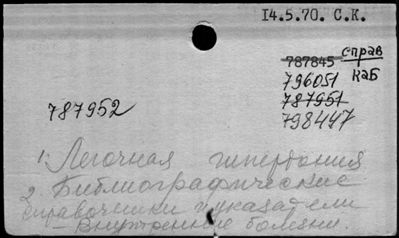 14.5.70. С.К.
787845 справ
796051 каб
787951
787952
798447
1. Легочная гипертония
2. Библиографические
справочники и указатели
– Внутренние болезни.